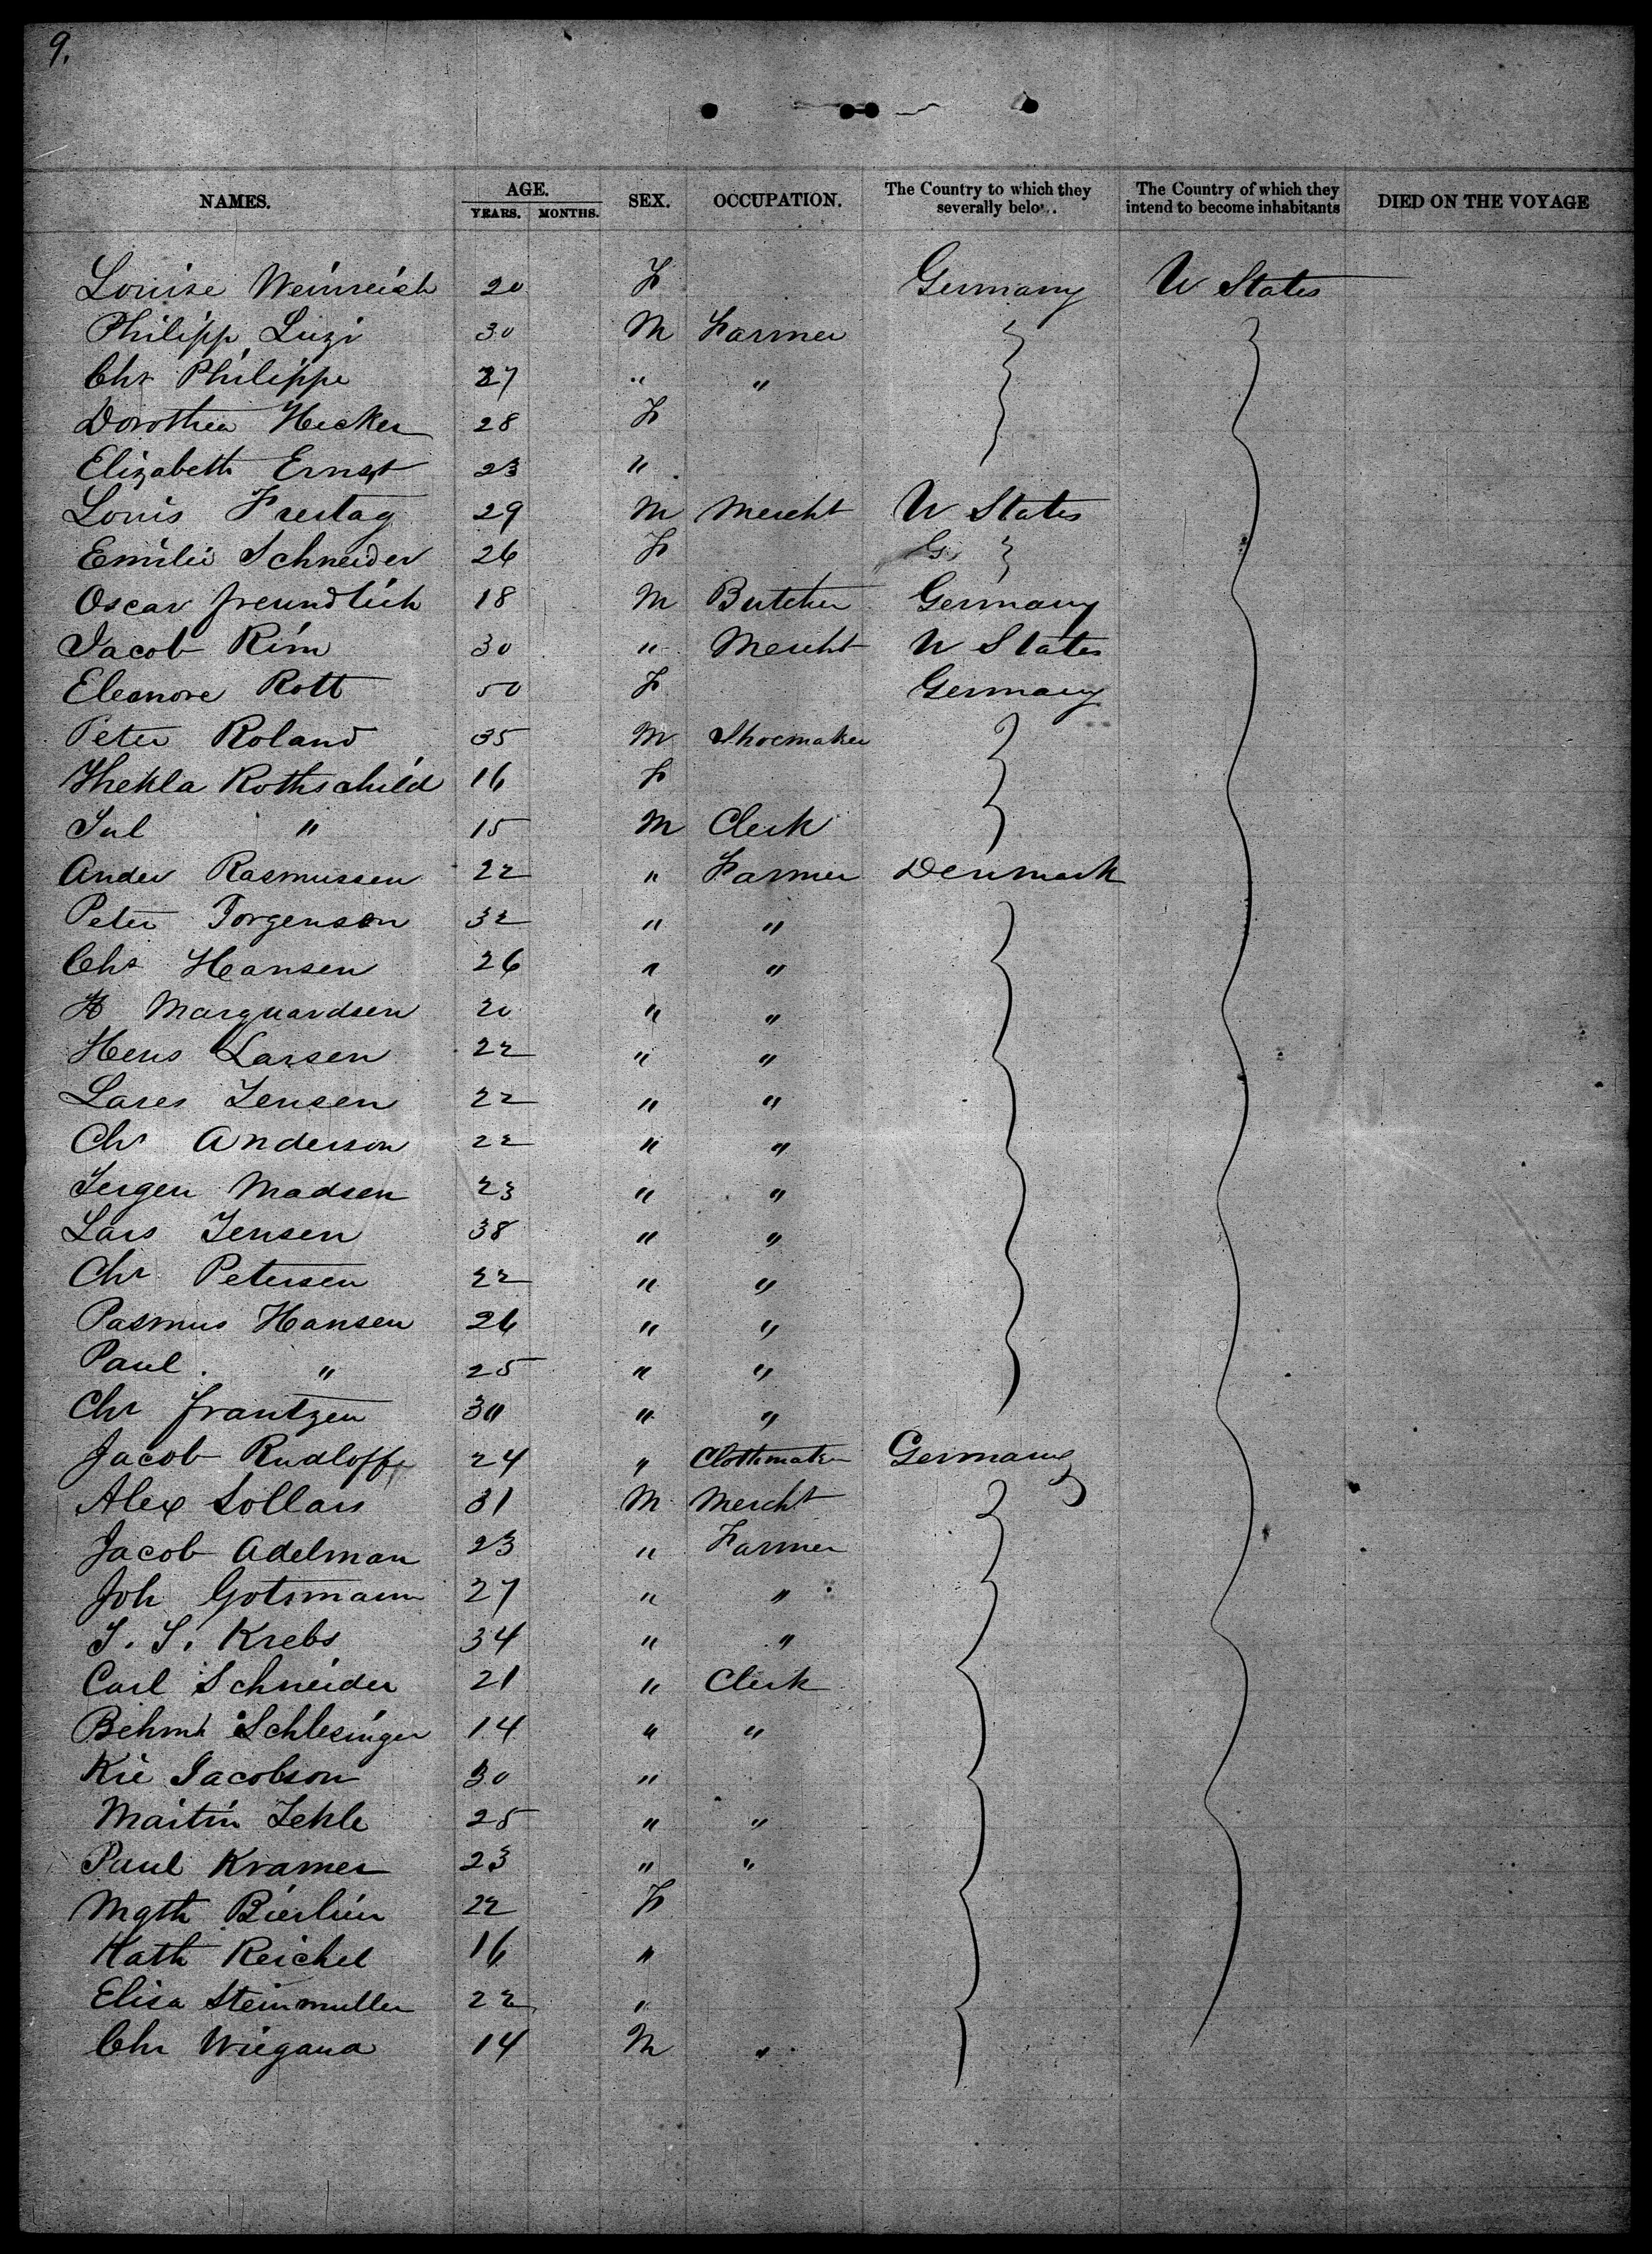 9.
NAMES. AGE. YEARS. MONTHS. SEX. OCCUPATION. The Country to which they severally belo.. The Country of which they intend to become inhabitants DIED ON THE VOYAGE
Louise Weinreich 20 F Germany U States
Philipp Luzi 30 M Farmer
Chr Philippe 27 " "
Dorothea Hecker 28 F
Elizabeth Ernst 23 "
Louis Freitag 29 M Mercht U States
Emilie Schneider 26 F G
Oscar Freundlich 18 M Butcher Germany
Jacob Rim 30 " Mercht U States
Eleonore Rott 50 F Germany
Peter Roland 35 M Shoemaker
Thekla Rothschild 16 F
Jul " 15 M Clerk
Ander Rasmussen 22 " Farmer Denmark
Peter Jorgenson 32 " "
Chr Hansen 26 " "
H Marquardsen 20 " "
Hens Larsen 22 " "
Lares Jensen 22 " "
Chr Anderson 22 " "
Jergen Madsen 23 " "
Lars Jensen 38 " "
Chr Petersen 22 " "
Pasmus Hansen 26 " "
Paul " 25 " "
Chr Frantzen 30 " "
Jacob Rudloff 24 " Clothmaker Germany
Alex Sollars 31 M Mercht
Jacob Adelman 23 " Farmer
Joh Gotsmann 27 " "
J. J. Krebs 34 " "
Carl Schneider 21 " Clerk
Behmh Schlesinger 14 " "
Kie Jacobson 30 "
Martin Jekle 25 " "
Paul Kramer 23 " "
Mgth Bierlein 22 F
Kath Reichel 16 "
Elisa Steinmuller 22 "
Chr Wiegand 14 M "